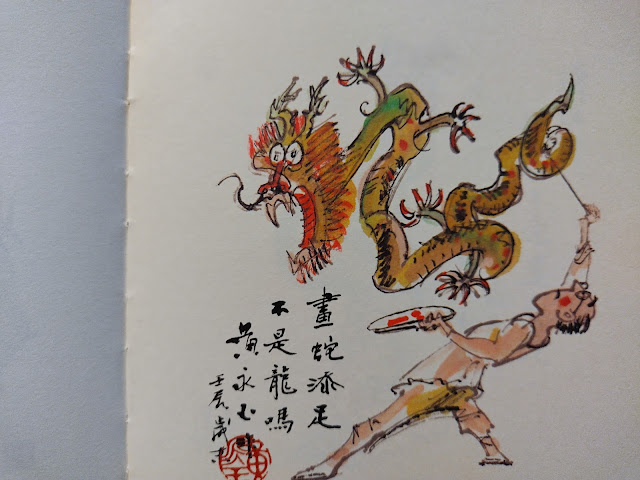 畫蛇添足
不是龍嗎
黃永玉
壬辰歲末